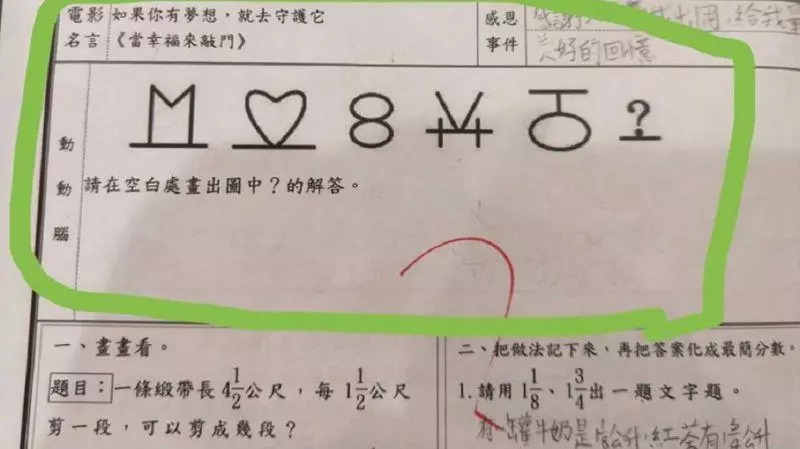 電影 如果你有夢想，就去守護它
名言 《當幸福來敲門》
感恩
事件
好的回憶
8 ?
動動腦
請在空白處畫出圖中？的解答。
一、畫畫看。
題目：一條緞帶長4 1/2公尺，每1 1/2公尺
剪一段，可以剪成幾段？
二、把做法記下來，再把答案化成最簡分數。
1.請用1 1/8、1 3/4出一題文字題。
罐牛奶是 公升,紅茶有 公升